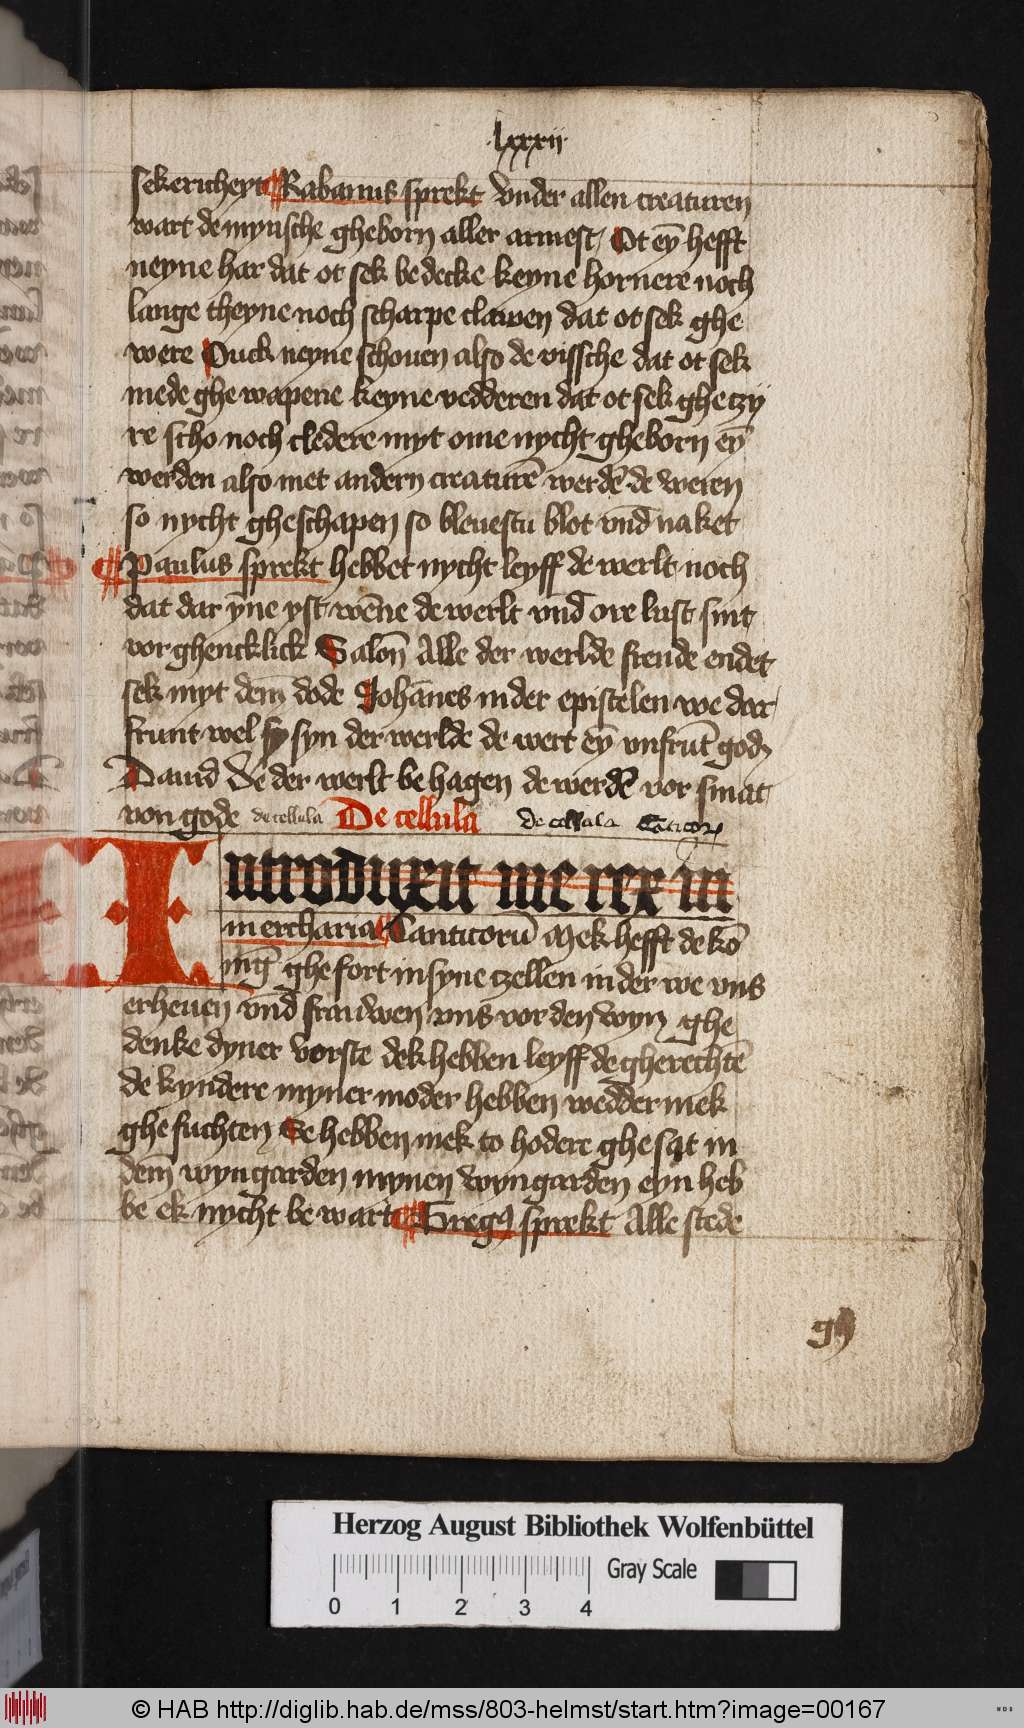 lxxxii
sekericheyt Rabanus sprekt vnder allen creaturen
wart de mynsche gheborn aller armest / Ot eȳ hefft
neyne har dat ot sek bedecke keyne hornere noch
lange theyne noch scharpe clawen dat ot sek ghe
were Ouck neyne schouen also de vissche dat ot sek
mede ghe wapene keyne vedderen dat ot sek ghe tzy
re scho noch cledere myt ome nycht gheborn eȳ
werden also met andern creaturē werdē de weren
so nycht gheschapen so bleuestu blot vnd naket
Paulus sprekt hebbet nycht leyff de werlt noch
dat dar yñe yst wēne de werlt vnd ore lust sint
vorghencklick Salōn Alle der werlde freude endet
sek myt dem̄ dode Johānes in der epistelen we dar
frunt wel sy syn der werlde de wert eȳ vnfrūt godz
Dauid De der werlt be hagen de werdē vor smat
von gode de cellula De cellula De cellula Cāticorz
Introduxit me rex in
in ercharia Canticorū Mek hefft de kō
nīg ghefort in syne tzellen in der we vns
erheuen vnd frauwen vns vor den wyn ghe
denke dyner vorste dek hebben leyff de gherechtē
de kyndere myner moder hebben wedder mek
ghefuchten Se hebben mek to hodere ghesat in
dem̄ wyngarden mynen wyngarden eyn heb
be ek nycht be wart Gregꝰ sprekt Alle stede
Herzog August Bibliothek Wolfenbüttel
Gray Scale
0 1 2 3 4
© HAB http://diglib.hab.de/mss/803-helmst/start.htm?image=00167